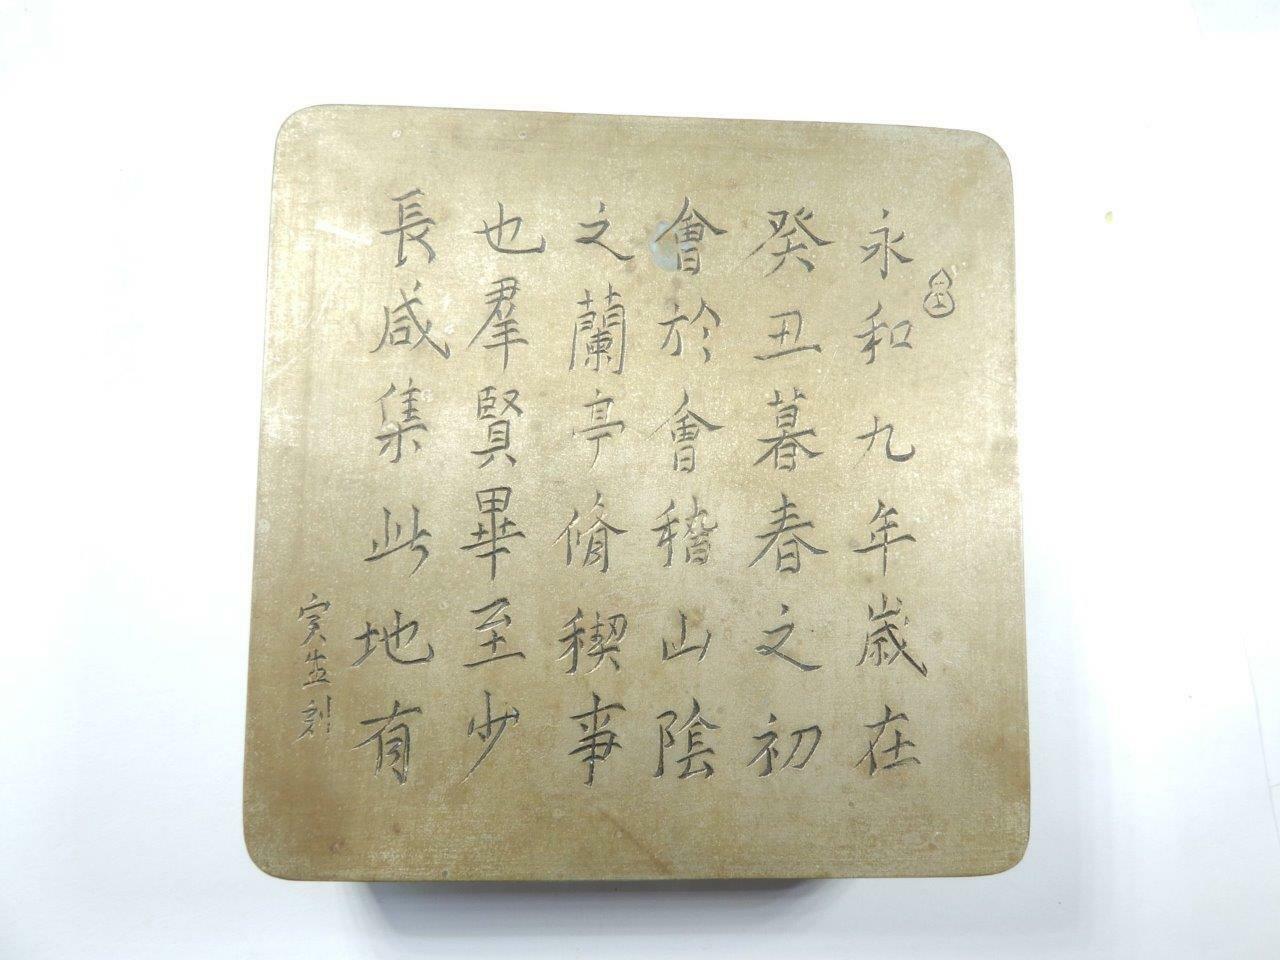 永和九年歲在
癸丑暮春之初
會於會稽山陰
之蘭亭脩稧事
也羣賢畢至少
長咸集此地有
寅生刻